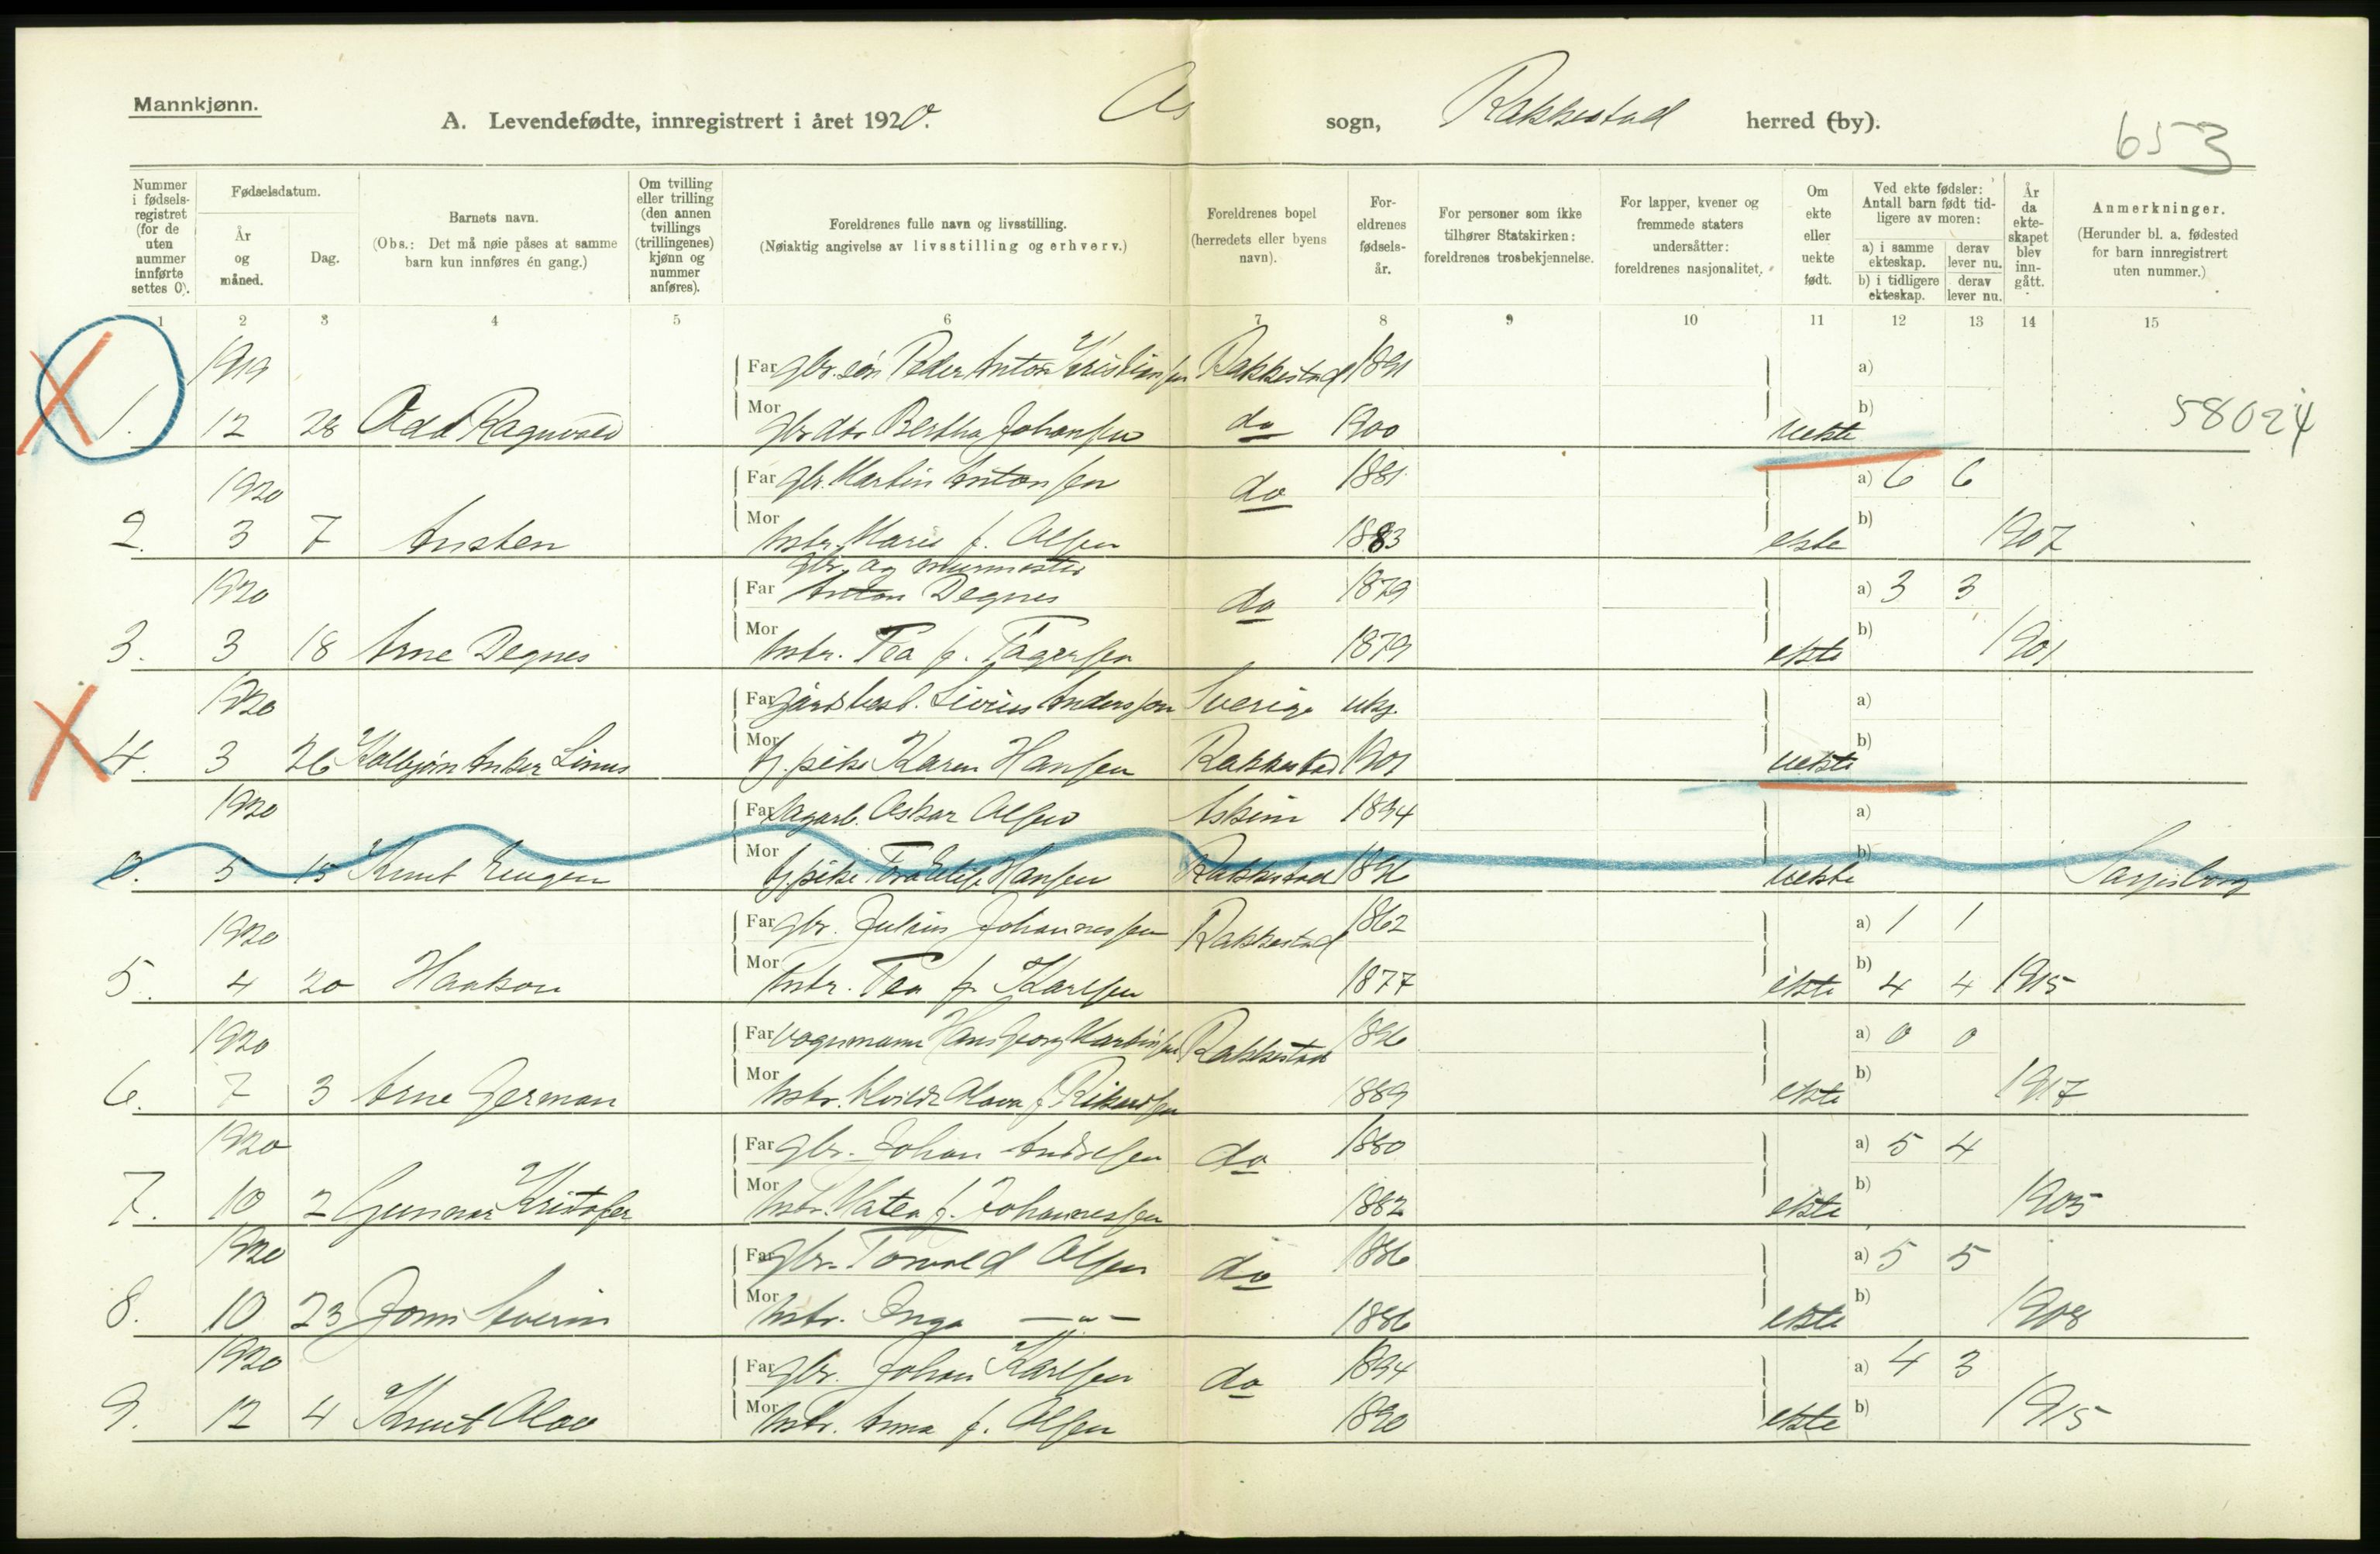 Mannkjønn.
A. Levendefødte, innregistrert i året 1920. Os sogn, Rakkestad herred (by).
653
Nummer i fødsels-registret (for de uten nummer innførte settes 0).
Fødselsdatum.
År og måned.
Dag.
Barnets navn.
(Obs.: Det må nøie påses at samme barn kun innføres én gang.)
Om tvilling eller trilling (den annen tvillings (trillingenes) kjønn og nummer anføres).
Foreldrenes fulle navn og livsstilling.
(Nøiaktig angivelse av livsstilling og erhverv.)
Foreldrenes bopel (herredets eller byens navn).
For-eldrenes fødsels-år.
For personer som ikke tilhører Statskirken: foreldrenes trosbekjennelse.
For lapper, kvener og fremmede staters undersåtter: foreldrenes nasjonalitet.
Om ekte eller uekte født.
Ved ekte fødsler: Antall barn født tid-ligere av moren:
a) i samme ekteskap. derav lever nu.
b) i tidligere ekteskap. derav lever nu.
År da ekte-skapet blev inn-gått.
Anmerkninger.
(Herunder bl. a. fødested for barn innregistrert uten nummer.)
1 2 3 4 5 6 7 8 9 10 11 12 13 14 15
1919 Far gbr. søn Peder Anton Kristiansen Rakkestad 1891 a)
1. 12 28 Odd Ragnvald Mor gbr dtr Bertha Johansen do 1900 uekte b) 58024
1920 Far gbr. Martin Antonsen do 1881 a) 6 6
2. 3 7 Austen Mor hstr. Marie f. Olsen 1883 ekte b) 1907
gbr. og murmester
1920 Far Anton Degnes do 1879 a) 3 3
3. 3 18 Arne Degnes Mor hstr. Tea f. Tagersen 1879 ekte b) 1901
1920 Far gårdsbest. Sivius Andersson Sverige ukj. a)
4. 3 26 Kolbjørn Anker Linus Mor tj. pike Karen Hansen Rakkestad 1901 uekte b)
1920 Far Oskar Olsen Askim 1894 a)
0. 5 15 Knut Eugen Mor tj pike Hansen Rakkestad 1896 uekte b) Sarpsborg
1920 Far gbr. Julius Johannessen Rakkestad 1862 a) 1 1
5. 4 20 Haakon Mor hstr. Tea f. Karlsen 1877 ekte b) 4 4 1915
1920 Far vognmann Hans Georg Martinsen Rakkestad 1896 a) 0 0
6. 7 3 Arne German Mor hstr. Olava f. Rikardsen 1889 ekte b) 1917
1920 Far gbr. Johan Andersen do 1880 a) 5 4
7. 10 2 Gunnar Kristofer Mor hstr. Matea f. Johannessen 1882 ekte b) 1905
1920 Far gbr. Torvald Olsen do 1886 a) 5 5
8. 10 23 Jon Severin Mor hstr. Inga — " — 1886 ekte b) 1908
1920 Far gbr. Johan Karlsen do 1894 a) 4 3
9. 12 4 Knut Olav Mor hstr. Anna f. Olsen 1890 ekte b) 1915